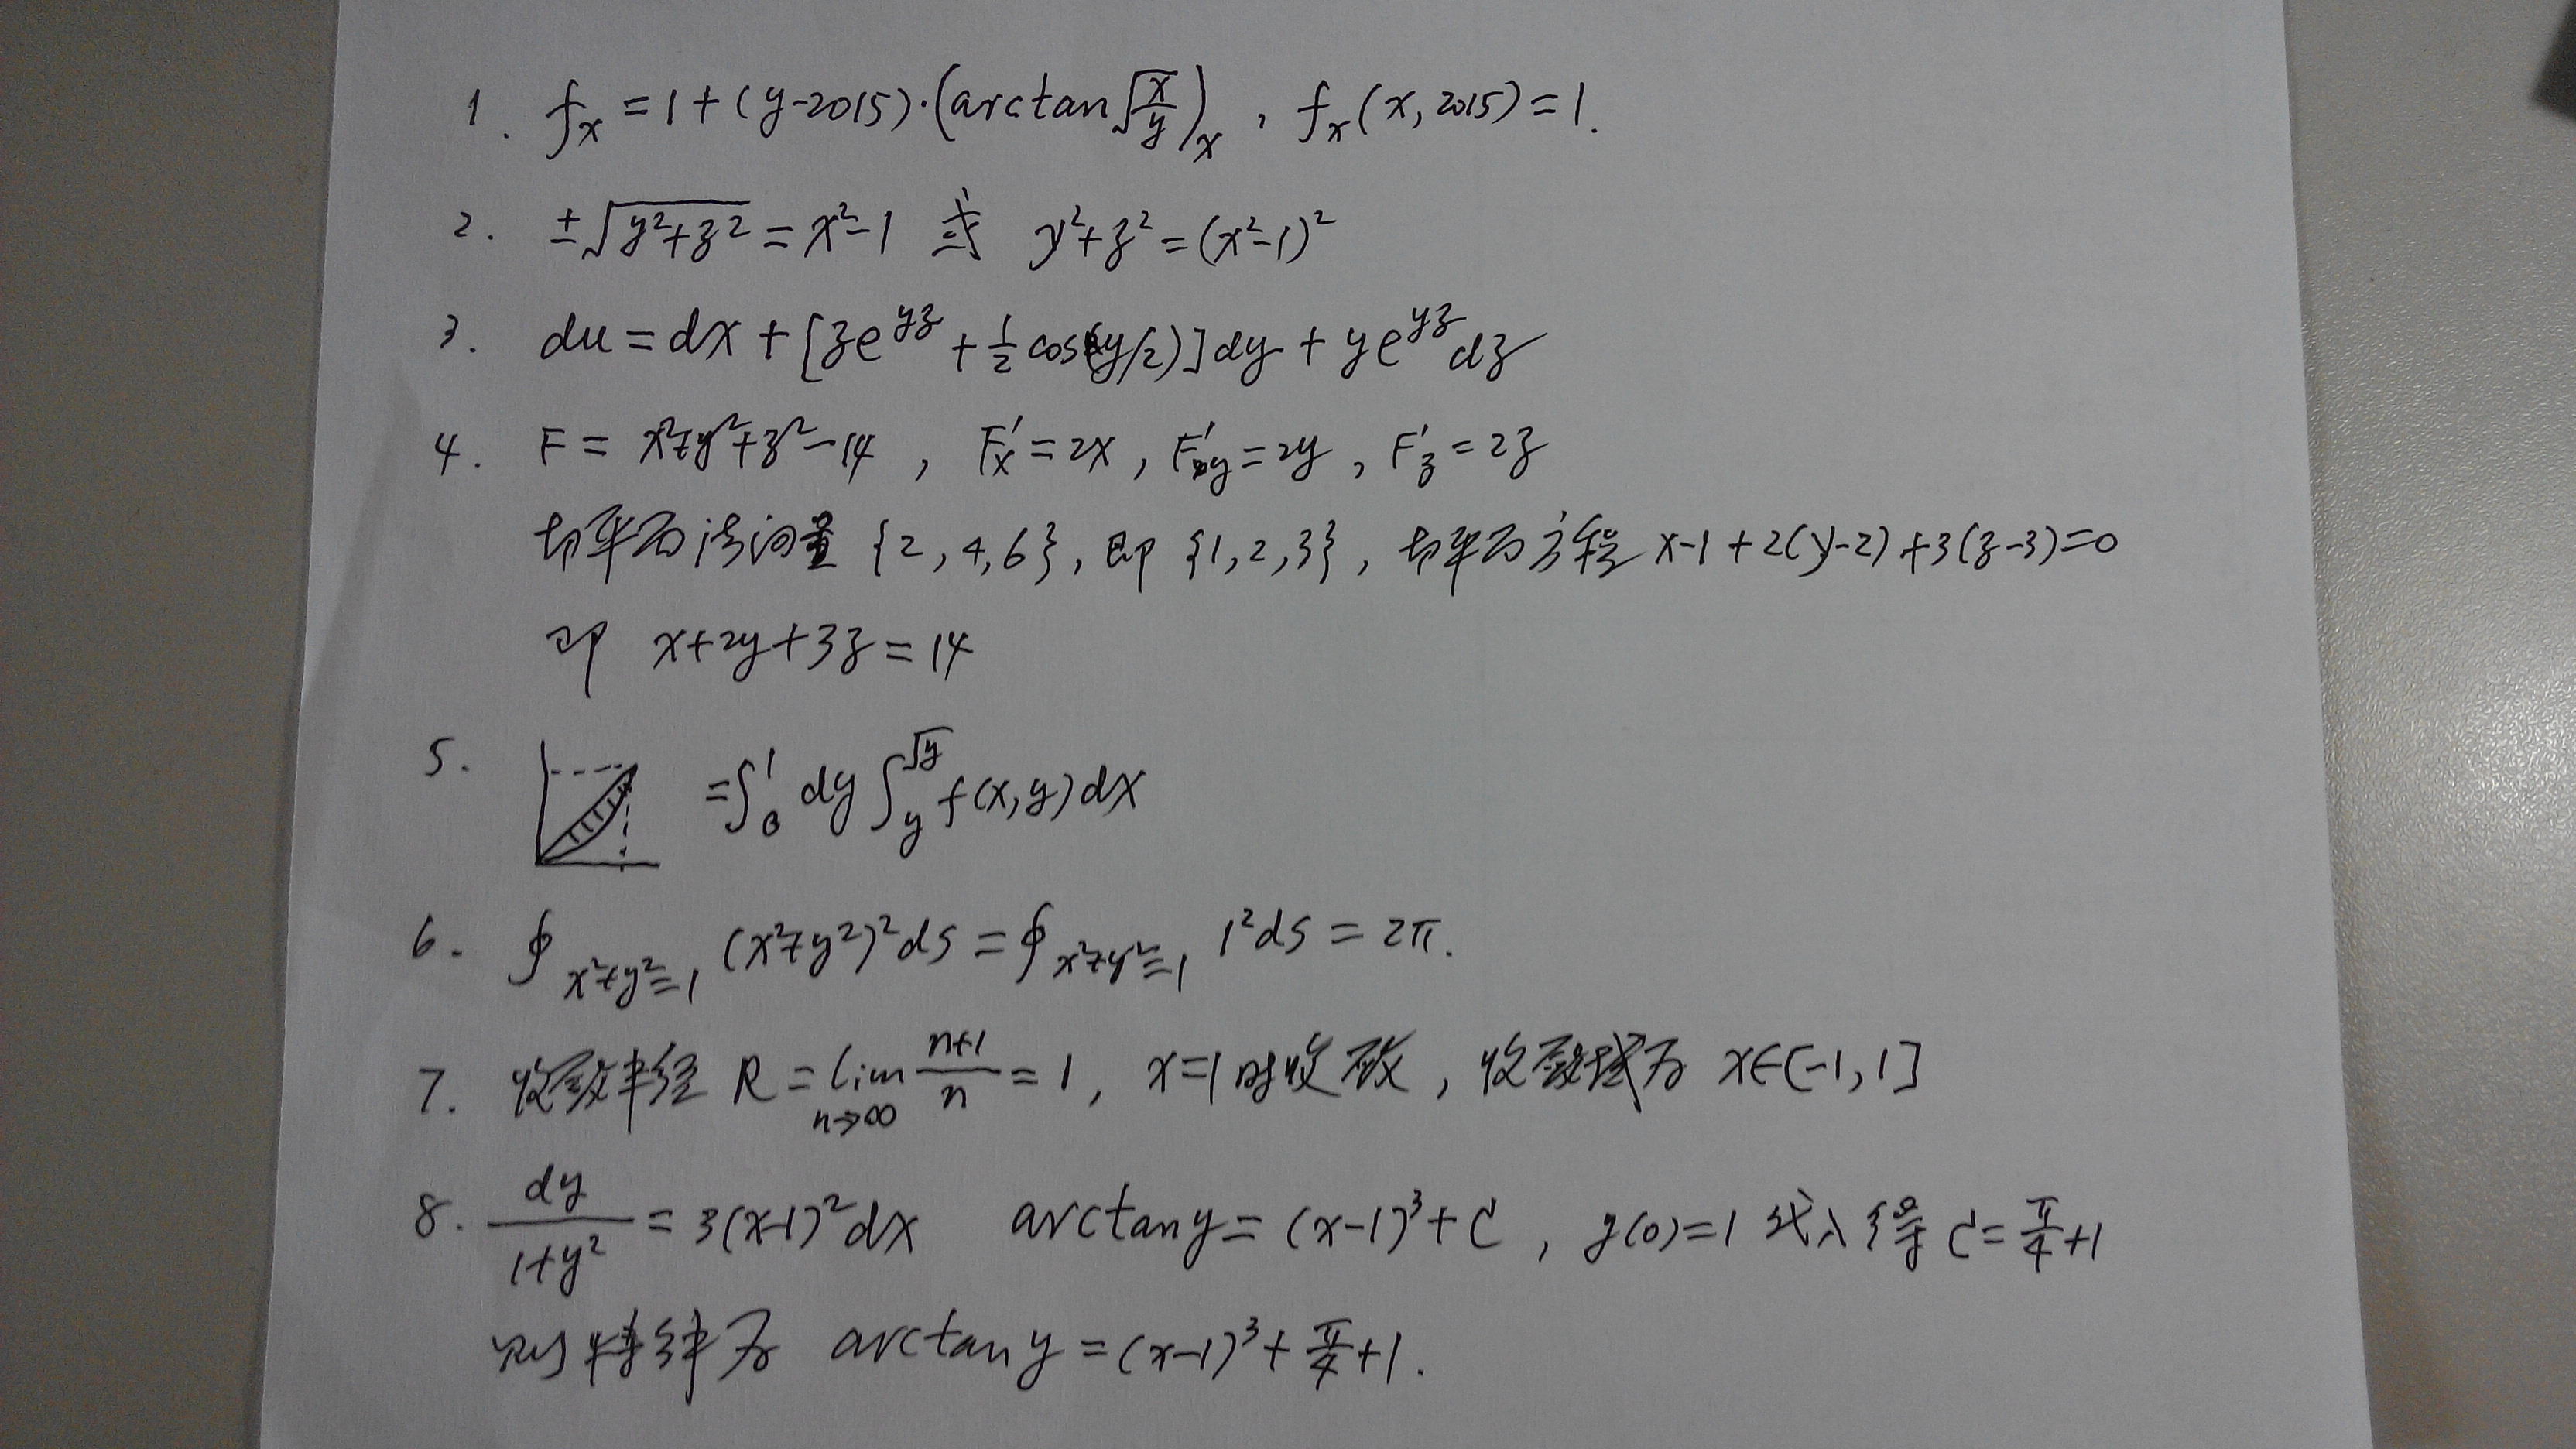 1. fₓ = 1 + (y-2015)·(arctan√(x/y))ₓ , fₓ(x, 2015) = 1.
2. ±√(y²+z²) = x²-1 或 y²+z² = (x²-1)²
3. du = dx + [ze^{yz} + ½cos(y/2)]dy + ye^{yz}dz
4. F = x²+y²+z²-14 , F'ₓ = 2x , F'_y = 2y , F'_z = 2z
切平面法向量 {2, 4, 6}, 即 {1, 2, 3}, 切平面方程 x-1+2(y-2)+3(z-3)=0
即 x+2y+3z = 14
5. = ∫₀¹ dy ∫_y^{√y} f(x,y)dx
6. ∮_{x²+y²=1} (x²+y²)²ds = ∮_{x²+y²=1} 1²ds = 2π.
7. 收敛半径 R = lim_{n→∞} (n+1)/n = 1, x=1时收敛, 收敛域为 x∈(-1, 1]
8. dy/(1+y²) = 3(x-1)²dx arctan y = (x-1)³+C , y(0)=1 代入得 C = π/4+1
则特解为 arctan y = (x-1)³ + π/4 + 1.